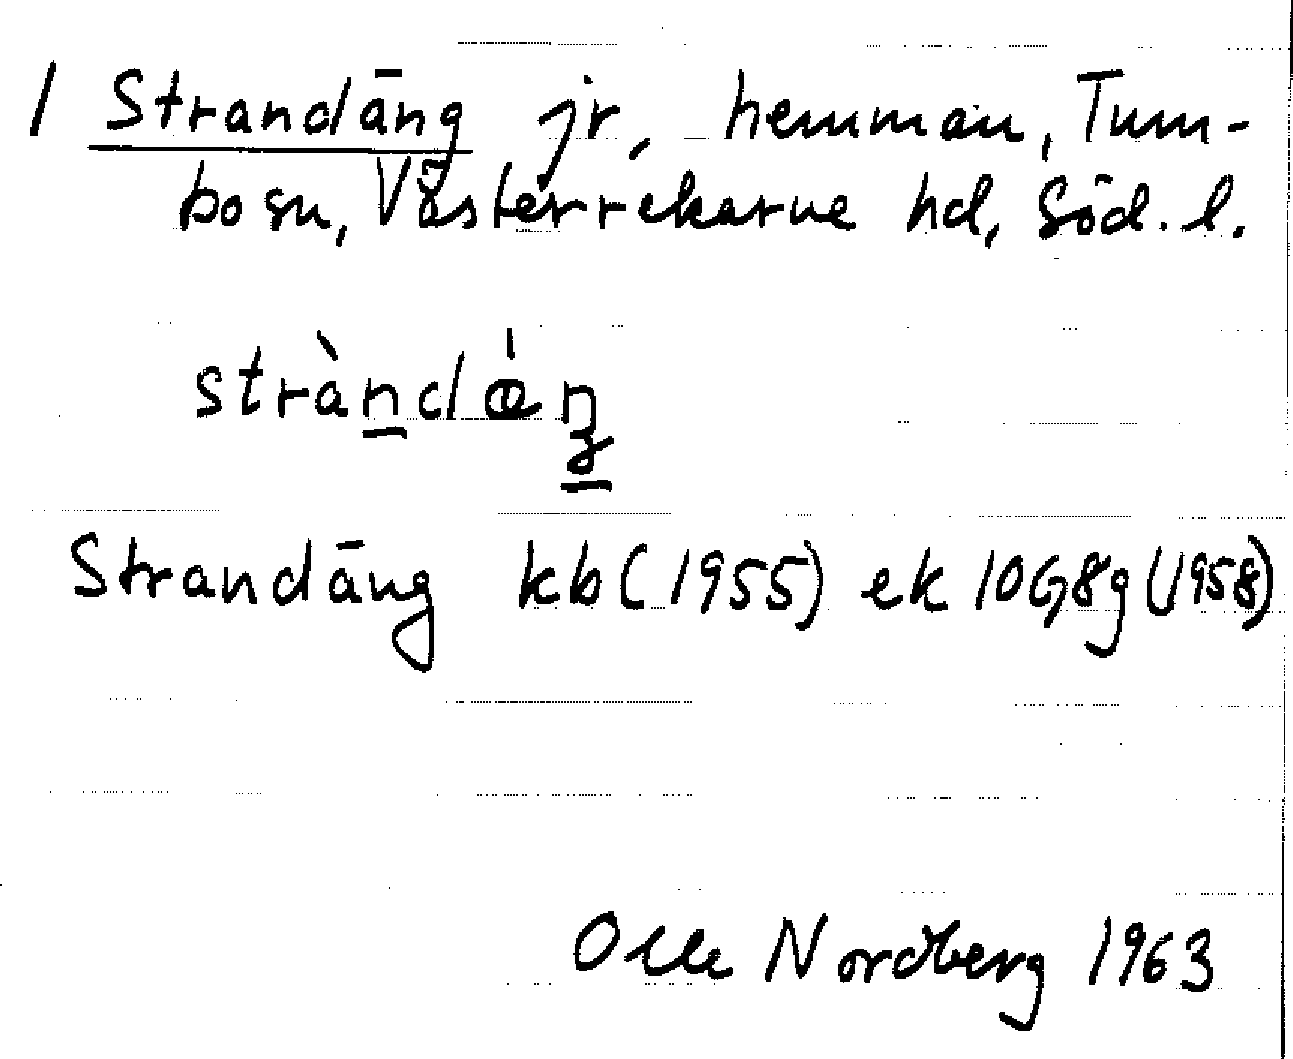 1 Strandäng jr, hemman, Tum-
bo sn, Västerrekarne hd, Söd. l.
stràndǽŋ
Strandäng kb (1955) ek 10G8g (1958)
Olle Nordberg 1963